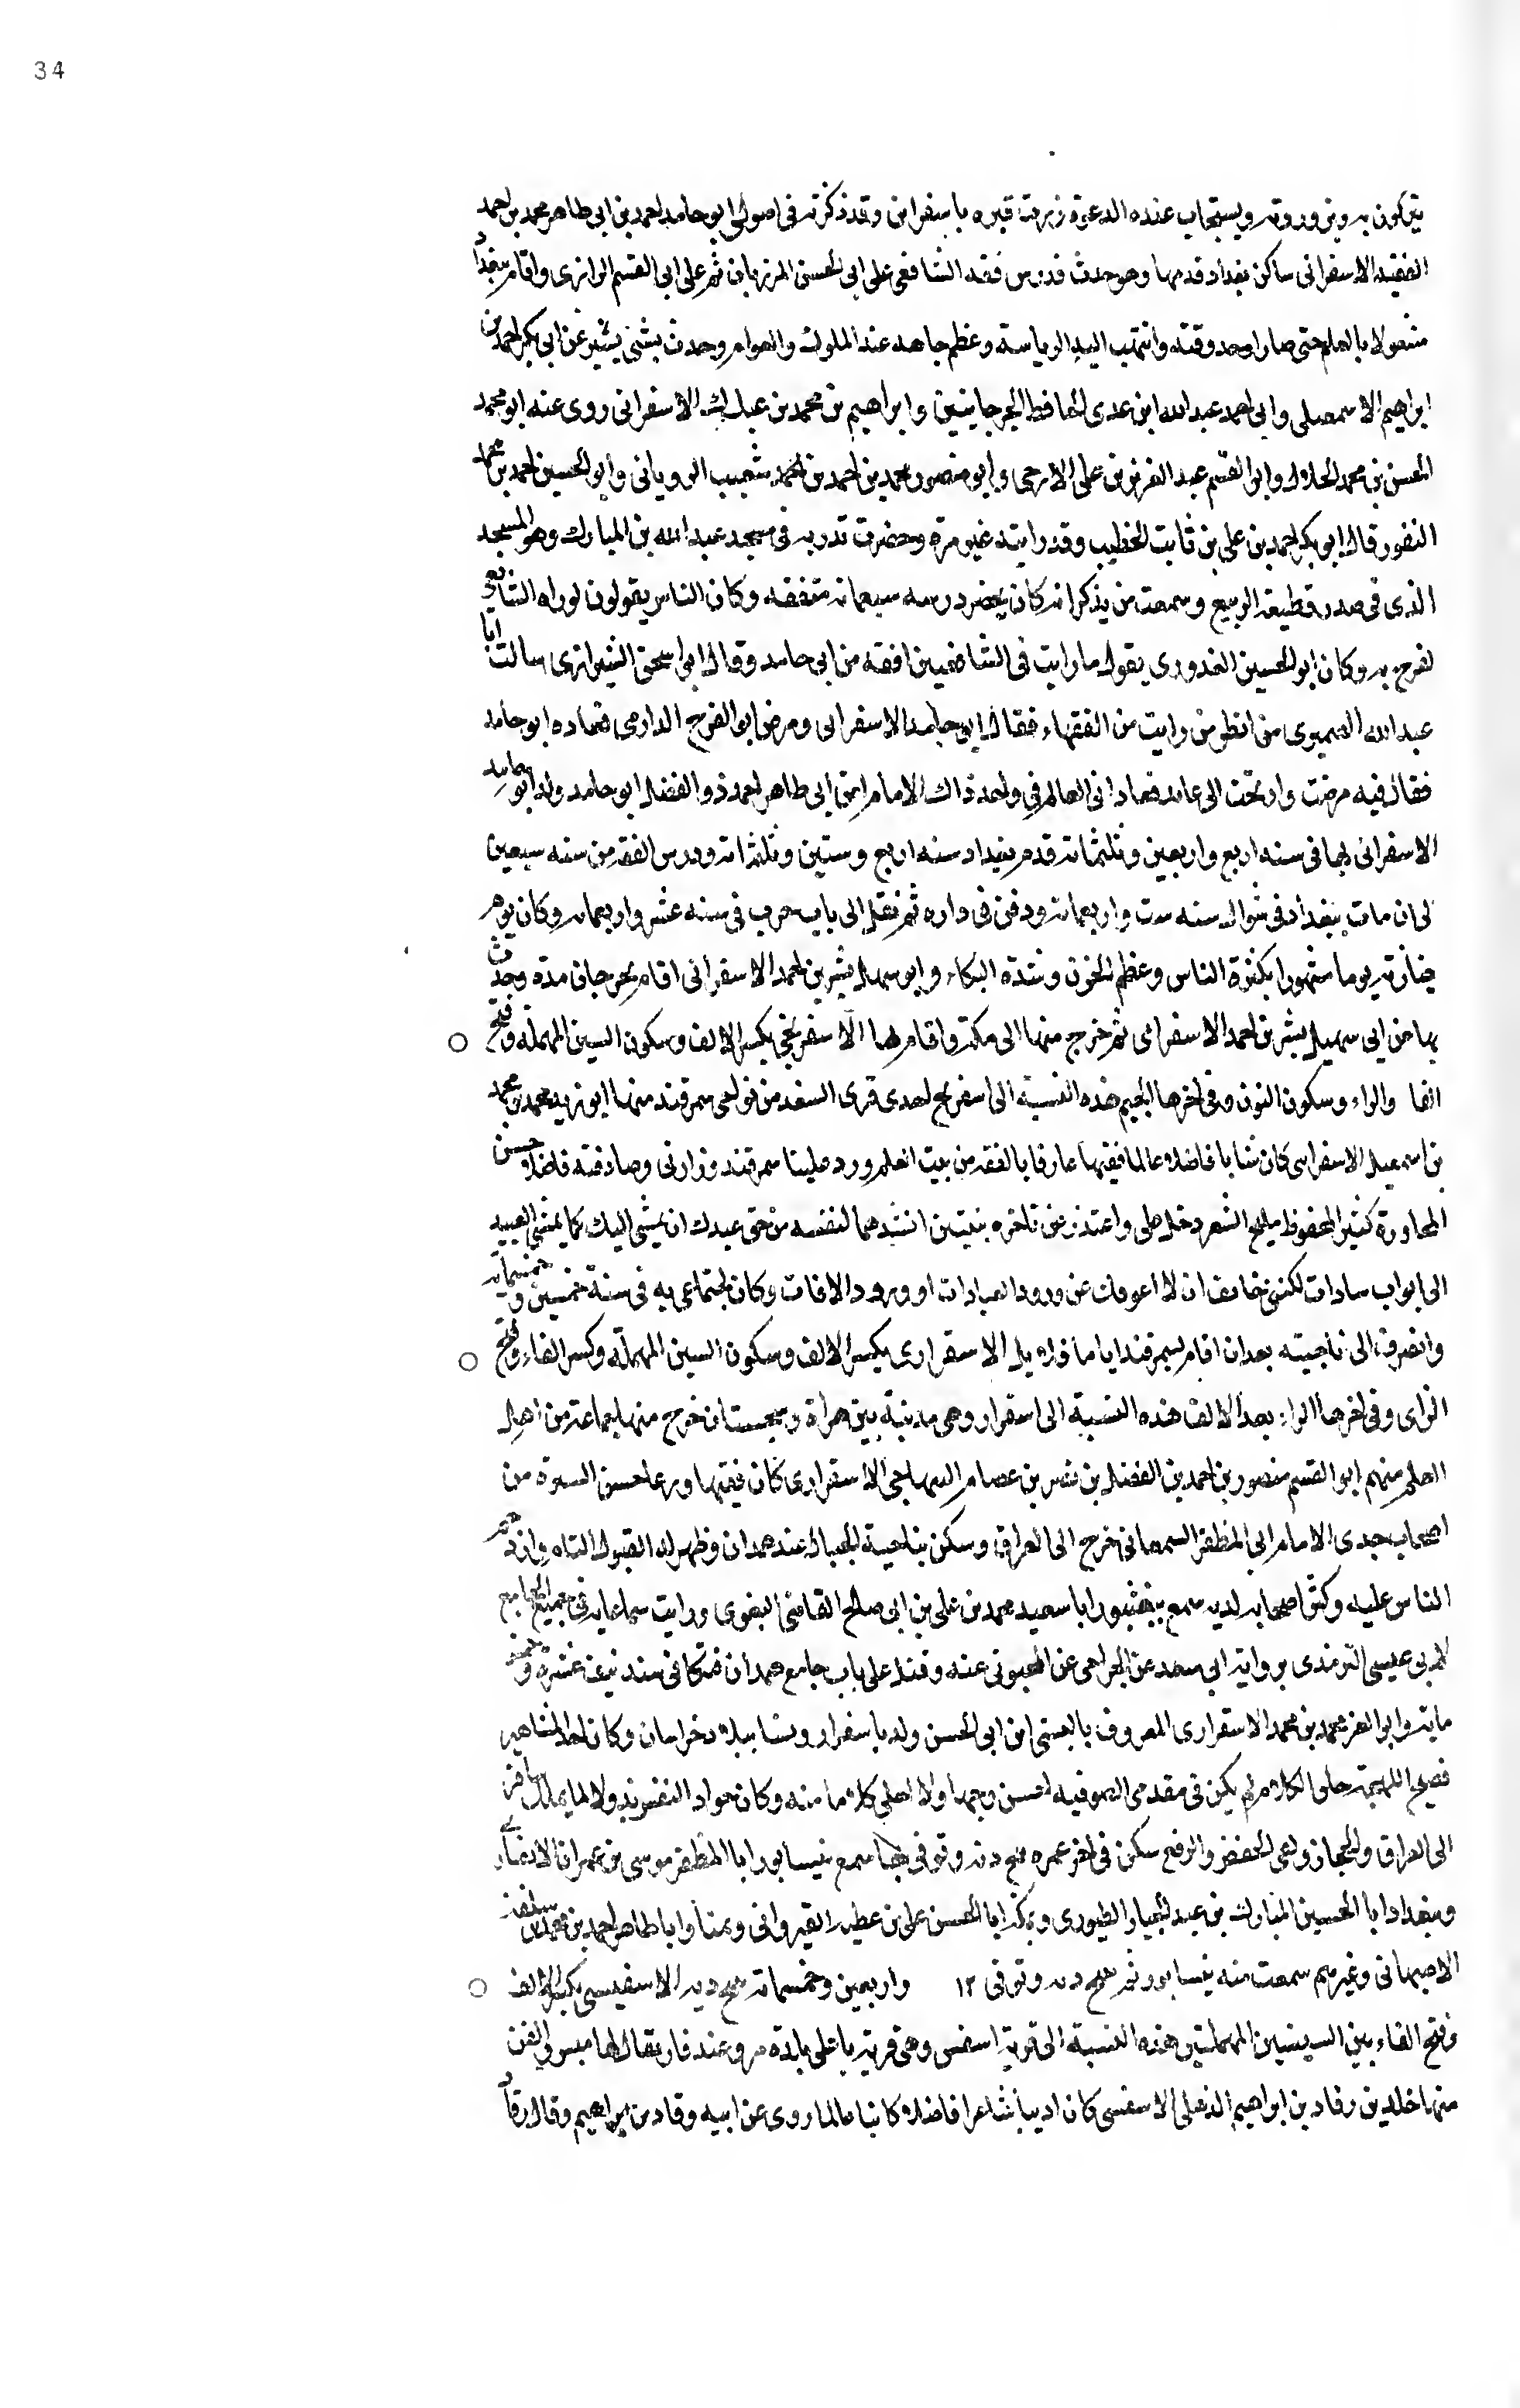 34
يتبركون به ويزورونه ويستجاب عنده الدعوة زرت قبره باسفراين وقد ذكرته في اصول ابو حامد احمد بن ابي طاهر محمد بن احمد
الفقيه الاسفراني ساكن بغداد قدمها وهو حدث فدرس فقه الشافعي على ابي الحسن المرزبان ثم على ابي القسم الرازي واقام ببغداد
مشغولا بالعلم حتى صار اوحد وقته وانتهت اليه الرياسة وعظم جاهه عند الملوك والعوام وحدث بشئ يسير عن ابي بكر احمد بن
ابراهيم الاسمعيلي وابي احمد عبد الله ابن عدى الحافظ الجرجانيين وابراهيم بن محمد بن عبدك الاسفراني روى عنه ابو محمد
الحسن بن محمد الخلال وابو القسم عبد العزيز بن على الازجي وابو منصور محمد بن احمد بن شعيب الروياني وابو الحسين احمد بن محمد
النقور قال ابو بكر احمد بن على بن ثابت الخطيب وقد رايته غير مرة وحضرت تدريسه في مسجد عبد الله بن المبارك وهو المسجد
الذى في صدر قطيعة الربيع وسمعت من يذكر انه كان يحضر درسه سبعمائة متفقه وكان الناس يقولون لو راه الشافعي
لفرح به وكان ابو الحسين القدوري يقول ما رايت في الشافعيين افقه من ابي حامد وقال ابو اسحق الشيرازى سالت ابا
عبد الله الصيمري من انظر من رايت من الفقهاء فقال ابو حامد الاسفرانى ومرض ابو الفرج الدارمي فعاده ابو حامد
فقال فيه مرضت وارتحت الى عائد فعادنى العالم في واحد ذاك الامام ابن ابي طاهر احمد ذو الفضل ابو حامد ولد ابو حامد
الاسفرانى بها في سنه اربع واربعين وثلثمائة قدم بغداد سنه اربع وستين وثلثمائة ودرس الفقه من سنه سبعين
الى ان مات ببغداد في شوال سنه ست واربعمائة ودفن في داره ثم نقل الى باب حرب في سنه عشر واربعمائة وكان يوم
جنازته يوما مشهورا بكثرة الناس وعظم الحزن وشدة البكاء وابو سهل بشر بن احمد الاسفرانى اقام بجرجان مدة وحدث
بها عن ابي سهل بشر بن احمد الاسفرانى ثم خرج منها الى مكة واقام بها الاسفرنجي بكسر الالف وسكون السين المهملة وفتح
الفا والراء وسكون النون وفي اخرها الجيم هذه النسبة الى اسفرنج احدى قرى السغد من نواحى سمرقند منها ابو زيد محمد بن محمد
بن اسمعيل الاسفرنجى كان شابا فاضلا عالما فقيها عارفا بالفقه من بيت العلم ورد علينا سمرقند وزارنى وصادفته فاضلا حسن
المحاورة كثير المحفوظ مليح الشعر دخل على واعتذر عن تاخره ببيتين انشدهما لنفسه من حق عبدك ان يمشى اليك كما يمشى العبيد
الى ابواب سادات لكننى خائف ان لا اعوقك عن ورود العبادات او ورود الافات وكان اجتماعى به في سنة خمسين وخمسمائة
وانصرف الى ناحيته بعد ان اقام بسمرقند اياما قلايل الاسفزارى بكسر الالف وسكون السين المهملة وكسر الفاء وفتح
الزاى وفي اخرها الراء بعد الالف هذه النسبة الى اسفزار وهى مدينة بين هراة وسجستان خرج منها جماعة من اهل
العلم منهم ابو القسم منصور بن احمد بن الفضل بن نصر بن عصام المنهاجى الاسفزارى كان فقيها ورعا حسن السيرة من
اصحاب جدى الامام ابي المظفر السمعانى خرج الى العراق وسكن بناحية الجبال عند همدان وظهر له القبول التام وازدحم
الناس عليه وكثر اصحابه لديه سمع ببغشور ابا سعيد محمد بن على بن ابي صالح القاضى البغوى ورايت سماعه في جميع الجامع
لابي عيسى الترمذى بروايته ابي سعد عن الجراحى عن المحبوبى عنه وقتل على باب جامع همدان فتكا في سنه نيف عشرة وخمس
مائة وابو العز محمد بن محمد الاسفزارى المعروف بالبستى ابن ابي الحسن ولد باسفزار ونشا ببلاد خراسان وكان احد المشاهير
فصيح اللهجة حلو الكلام لم يكن في مقدمى الصوفيه احسن وجها ولا احلى كلاما منه وكان جواد النفس بذولا لما يملك سافر
الى العراق والحجاز ولقى الخفض والرفع سكن في اخر عمره وتوفى بها سمع بنيسابور ابا المظفر موسى بن عمران الانصارى
وببغداد ابا الحسين المبارك بن عبد الجبار الطيورى وبمكة ابا الحسن على بن عطيه القيروانى وابا طاهر احمد بن محمد
الاصبهانى وغيرهم سمعت منه بنيسابور وتوفى ١٢ واربعين وخمسمائة الاسفيسى بكسر الالف
وفتح الفاء بين السينين المهملتين هذه النسبة الى قرية اسفس وهى قرية باعلى بلدة مرو عند فاز يقال لها
منها خالد بن رقاد بن ابراهيم الذهلى الاسفسى كان اديبا شاعرا فاضلا كاتبا عالما روى عن ابيه رقاد بن ابراهيم وقال